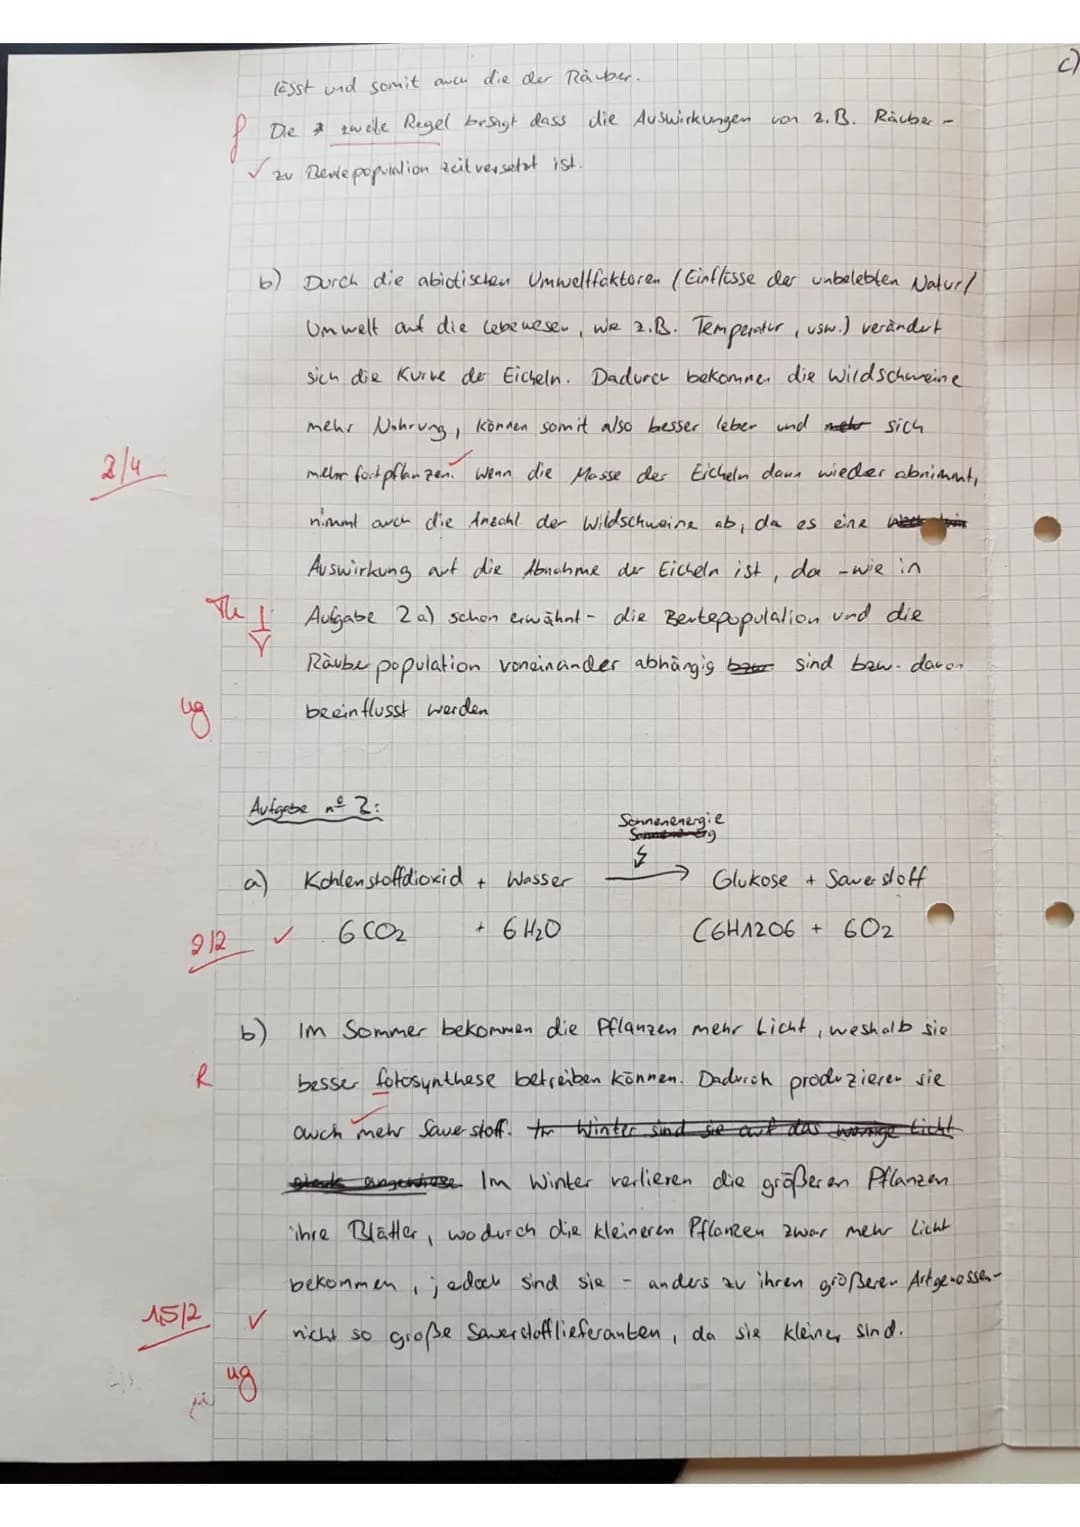 c)
lässt und somit auch die der Räuber.
f Die zweite Regel besagt dass die Auswirkungen von z.B. Räuber -
✓ zu Beutepopulation zeitversetzt ist.
b) Durch die abiotischen Umweltfaktoren (Einflüsse der unbelebten Natur/
Umwelt auf die Lebewesen, wie z.B. Temperatur, usw.) verändert
sich die Kurve der Eicheln. Dadurch bekommen die Wildschweine
mehr Nahrung, können somit also besser leben und mehr sich
2/4 mehr fortpflanzen. ✓ Wenn die Masse der Eicheln dann wieder abnimmt,
nimmt auch die Anzahl der Wildschweine ab, da es eine
Auswirkung auf die Abnahme der Eicheln ist, da - wie in
Aufgabe 2a) schon erwähnt - die Beutepopulation und die
Räuberpopulation voneinander abhängig bzw sind bzw. davon
ug beeinflusst werden
Aufgabe nº 2:
Sonnenenergie
a) Kohlenstoffdioxid + Wasser → Glukose + Sauerstoff
2/2 ✓ 6 CO2 + 6 H2O C6H12O6 + 6O2
b) Im Sommer bekommen die Pflanzen mehr Licht, weshalb sie
R besser fotosynthese betreiben können. Dadurch produzieren sie
auch mehr Sauerstoff. Im Winter sind sie auf das wenige Licht
stark angewiesen. Im Winter verlieren die größeren Pflanzen
ihre Blätter, wodurch die kleineren Pflanzen zwar mehr Licht
bekommen, jedoch sind sie - anders zu ihren größeren Artgenossen-
1,5/2 ✓ nicht so große Sauerstofflieferanten, da sie kleiner sind.
ug